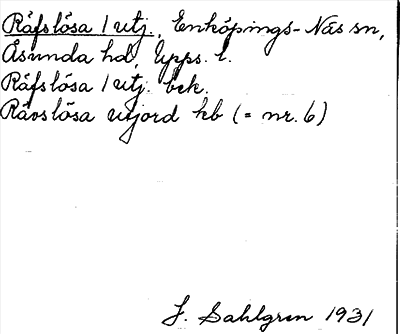 Råfslösa 1 utj., Enköpings-Näs sn,
Åsunda hd, Upps. l.
Råfslösa 1 utj. bek.
Råvslösa utjord kb (= nr. 6)
J. Sahlgren 1931